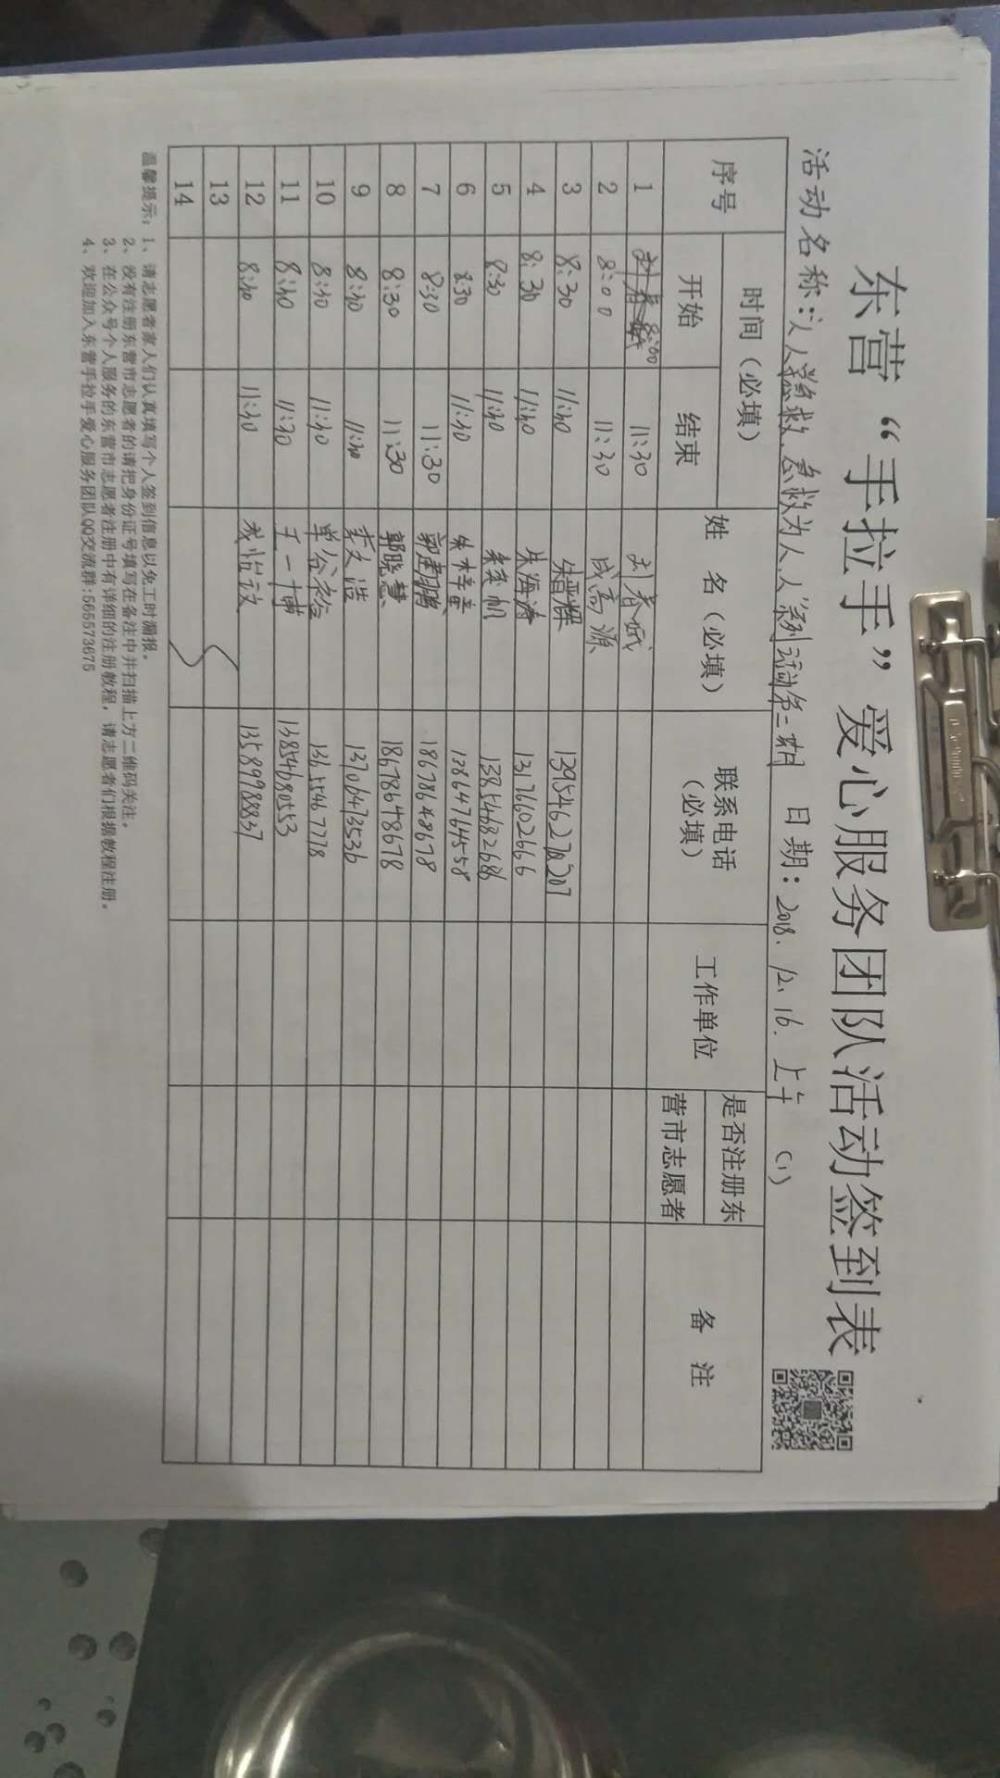 东营“手拉手”爱心服务团队活动签到表
活动名称:人人学急救 急救为人人系列活动第二期 日期:2018.12.16.上午 (1)
序号 时间(必填) 姓 名(必填) 联系电话(必填) 工作单位 是否注册东营市志愿者 备 注
开始 结束
1 8:00 11:30 刘春
2 8:00 11:30 成高源
3 8:30 11:30 朱亚辉
4 8:30 11:30 朱海涛 13176602666
5 8:30 11:30 13854682686
6 8:30 11:30 朱梓童 13864764558
7 8:30 11:30 郭建鹏 18678648678
8 8:30 11:30 郭晓慧 18678648678
9 8:30 11:30 13706473536
10 8:30 11:30 13655467778
11 8:30 11:30 王一博 13854680553
12 8:30 11:30 13589988837
13
14
温馨提示:1、请志愿者家人们认真填写个人签到信息以免工时漏报。
2、没有注册东营市志愿者的请把身份证号填写在备注中并扫描上方二维码关注。
3、在公众号个人服务的东营市志愿者注册中有详细的注册教程,请志愿者们根据教程注册。
4、欢迎加入东营手拉手爱心服务团队QQ交流群:565573675